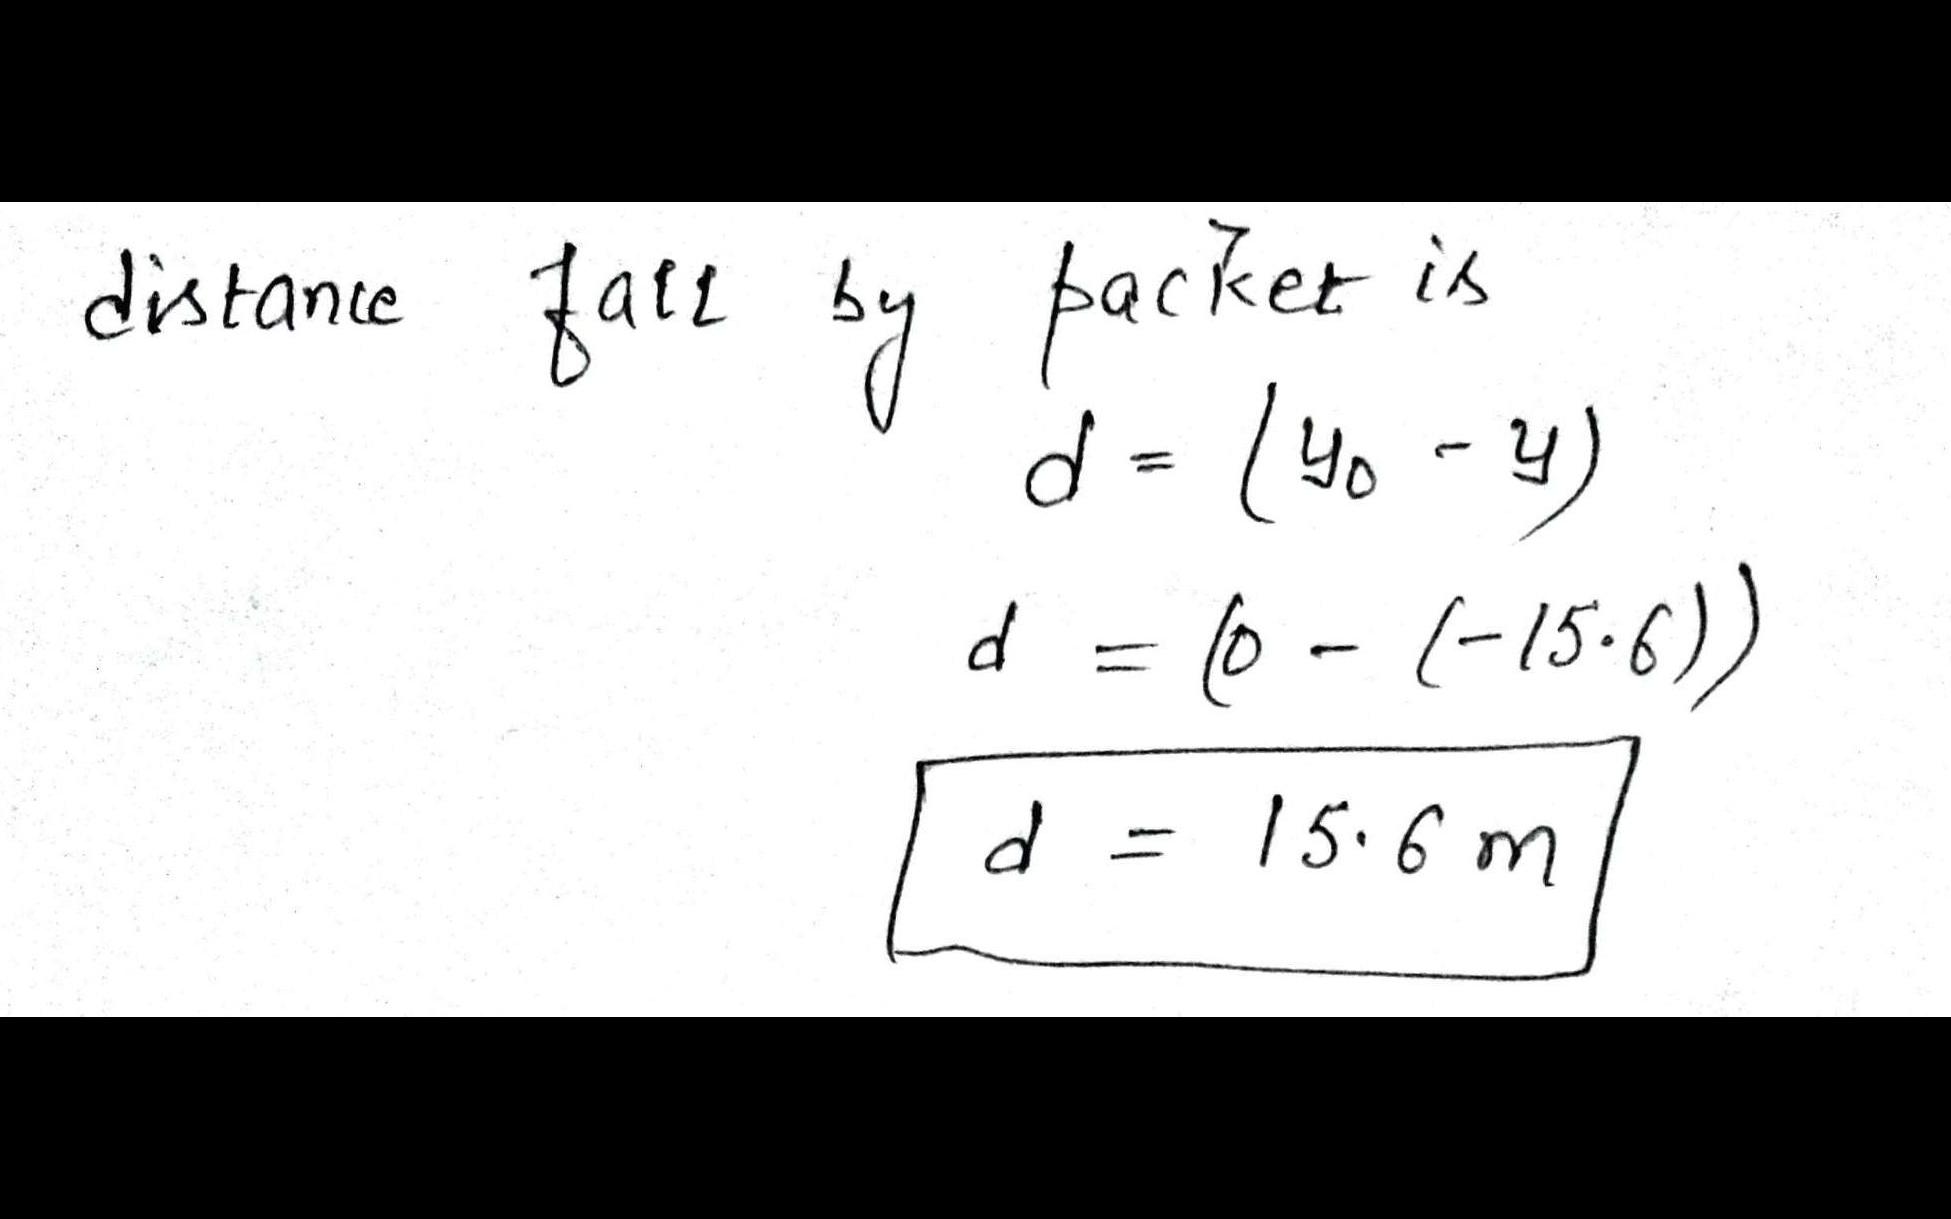 distance fall by packet is
d = (y₀ - y)
d = (0 - (-15.6))
d = 15.6 m